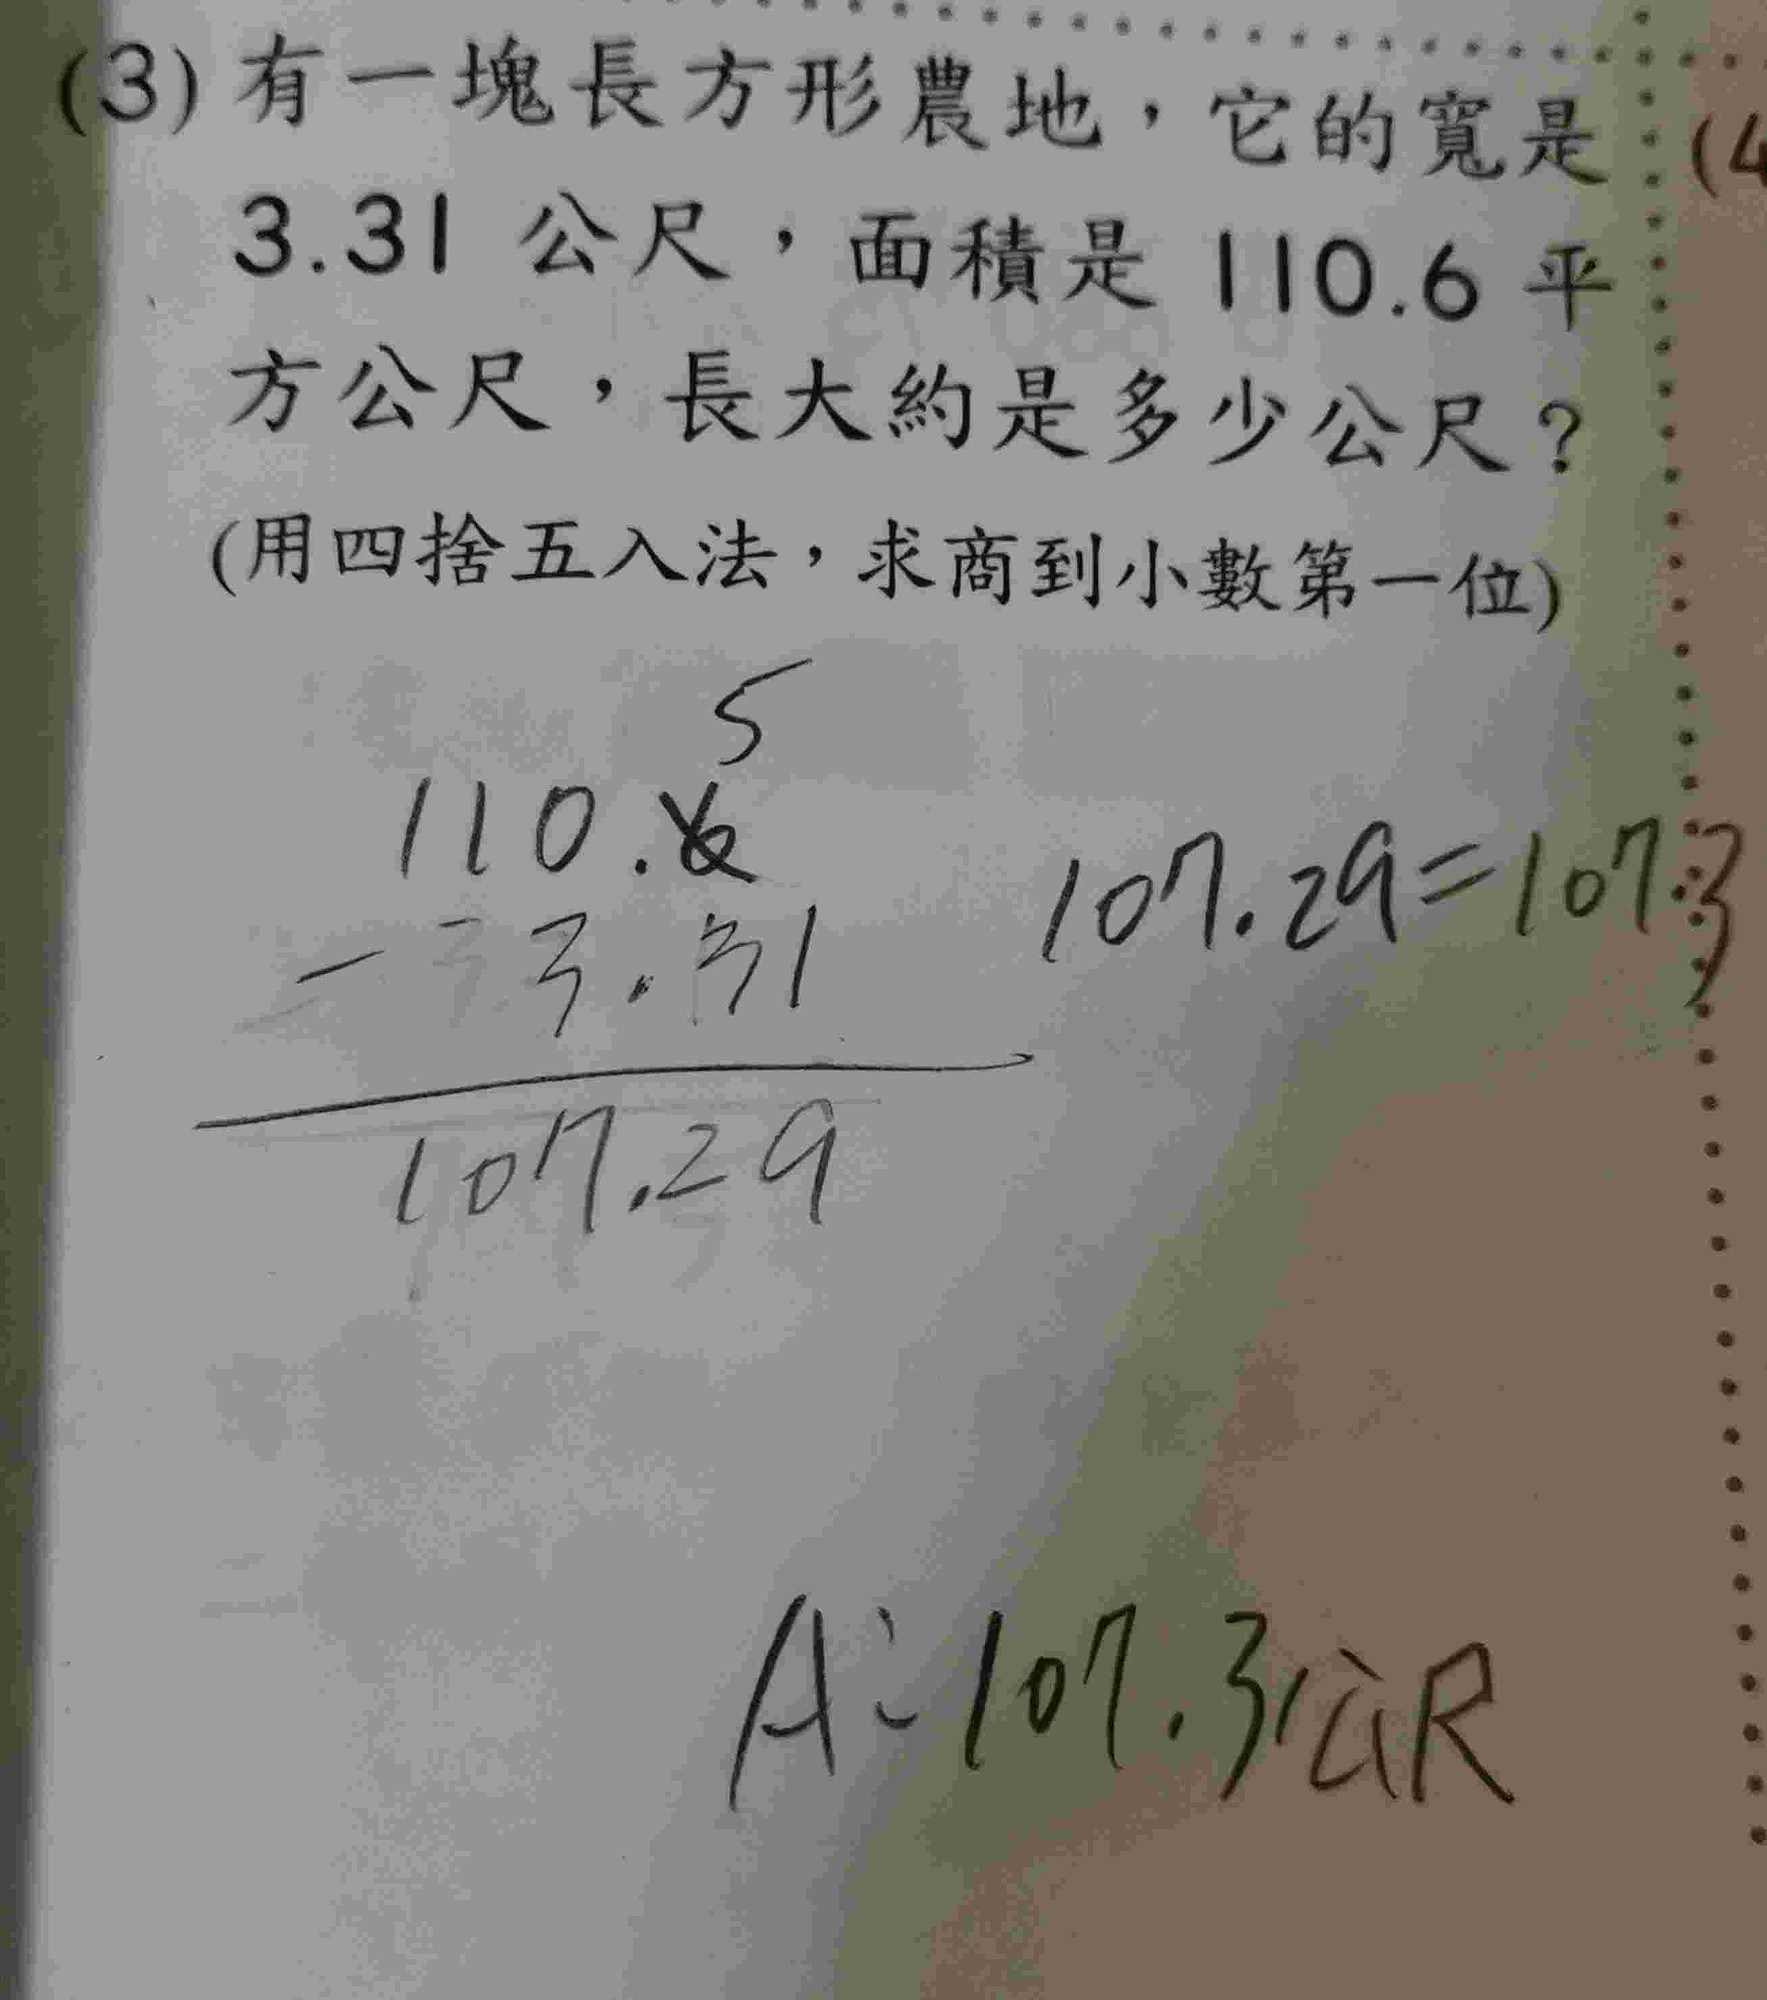 (3) 有一塊長方形農地，它的寬是
3.31 公尺，面積是 110.6 平
方公尺，長大約是多少公尺？
(用四捨五入法，求商到小數第一位)
(4
5
110.6
- 3.31
107.29
107.29=107.3
A:107.3公尺